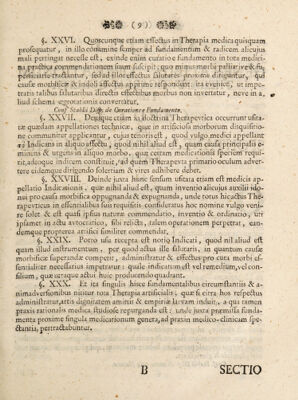 ( 9 )
§. XXVI. Quotcunque etiam effectus in Therapia medica quisquam
prosequatur, in illo conamine semper ad fundamentum & radicem alicujus
mali pertingat necesse est, exinde enim curativo fundamento in tota medici-
na practica commendationem suam suscipit; quo minus morbi palliative & su-
perficiarie tractentur, sed ad illos effectus salutares proxime dirigantur, qui
causæ morbificæ & indoli affectus apprime respondent: ita evenict, ut impe-
trantis talibus salutaribus directis effectibus morbus non invertatur, neve in a-
liud schema verocationis convertatur.
Conf. Stahlii Diss. de Curatione Fundamento.
§. XXVII. Denique etiam in doctrina Therapevtica occurrunt usita-
tæ quædam appellationes technicæ, quæ in artificiosa morborum disquisitio-
ne communicari debent, quorum in numero refertur,
Indicans in aliquo affectu, quod nihil aliud est, quam causa principalis e-
minens & urgens in aliquo morbo, quæ certam methodum agendi sem per requi-
rit, adeoque indicem constituit, ad quem Therapevta primario oculum adver-
tere eidemque dirigendo solertiam & vires adhibere debet.
§. XXVIII. Deinde juxta hunc sensum usitata etiam est medicis ap-
pellatio Indicationis, quæ nihil aliud est, quam inventio alicujus auxilii ido-
nei pro causa morbifica oppugnanda & expugnanda, unde totus hic actus The-
rapevticus in essentialibus suis requisitis consideratus hoc nomine vulgo veni-
re solet & est quasi ipsius naturæ commendatio, inventio & ordinatio, ut
ipsamet in actu avocatrico, sibi relicto, talem operationem perpetret, ean-
demque propterea artifici similiter commendat.
§. XXIX. Porro usu recepta est notio Indicati, quod nil aliud est
quam illud instrumentum, per quod actus ille salutaris, in quantum causæ
morbificæ superandæ competit, administratur & effectus pro cura morbi es-
sentialiter necessarius impetratur: quale indicatum est vel remedium, vel con-
silium, quæ utraque actui huic producendo quadrant.
§. XXX. Et ita singulis hisce fundamentalibus circumstantiis & a-
nimadversionibus nititur tota Therapia artificialis, quæ si citra hos respectus
administratur, artis dignitatem amittit & empiriæ larvam induit, a qua tamen
praxis rationalis medica studiose repurganda est: unde juxta præmissa funda-
menta proxime singula medicationum genera, ad praxin medico-clinicam spe-
ctantia, pertractabuntur.
B
SECTIO